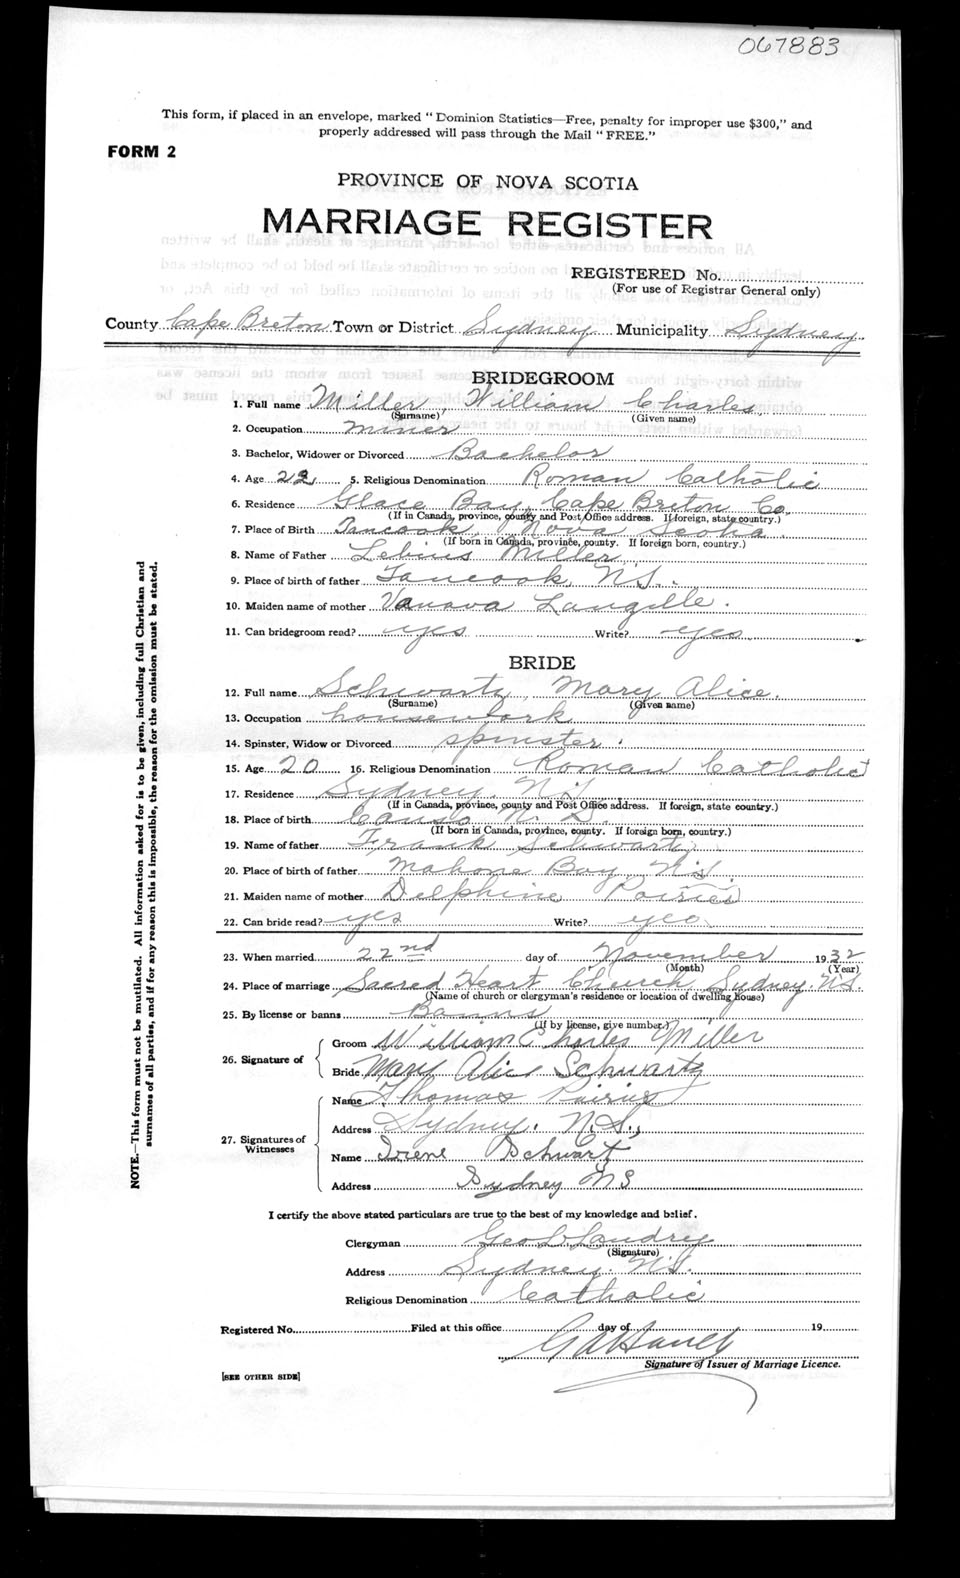 067883
This form, if placed in an envelope, marked "Dominion Statistics—Free, penalty for improper use $300," and
properly addressed will pass through the Mail "FREE."
FORM 2
PROVINCE OF NOVA SCOTIA
MARRIAGE REGISTER
REGISTERED No.
(For use of Registrar General only)
County Cape Breton Town or District Sydney Municipality Sydney
BRIDEGROOM
1. Full name Miller, William Charles
(Surname) (Given name)
2. Occupation miner
3. Bachelor, Widower or Divorced Bachelor
4. Age 5. Religious Denomination Roman Catholic
6. Residence Glace Bay, Cape Breton Co.
(If in Canada, province, county and Post Office address. If foreign, state country.)
7. Place of Birth Tancook, Nova Scotia
(If born in Canada, province, county. If foreign born, country.)
8. Name of Father Miller
9. Place of birth of father Tancook, N.S.
10. Maiden name of mother Langille.
11. Can bridegroom read? yes Write? yes
BRIDE
12. Full name Schwartz, Mary Alice.
(Surname) (Given name)
13. Occupation housework
14. Spinster, Widow or Divorced spinster.
15. Age 20 16. Religious Denomination Roman Catholic
17. Residence Sydney, N.S.
(If in Canada, province, county and Post Office address. If foreign, state country.)
18. Place of birth Canso N.S.
(If born in Canada, province, county. If foreign born, country.)
19. Name of father Frank Schwartz
20. Place of birth of father Mahone Bay, N.S.
21. Maiden name of mother Delphine
22. Can bride read? yes Write? yes
23. When married 22nd day of November 1932
(Month) (Year)
24. Place of marriage Sacred Heart Church, Sydney. N.S.
(Name of church or clergyman's residence or location of dwelling house)
25. By license or banns Banns
(If by license, give number.)
26. Signature of Groom William Charles Miller
Bride Mary Alice Schwartz
27. Signatures of Witnesses
Name Thomas
Address Sydney. N.S.,
Name Irene Schwartz
Address Sydney NS
I certify the above stated particulars are true to the best of my knowledge and belief.
Clergyman Geo L Landry
(Signature)
Address Sydney. N.S.
Religious Denomination Catholic
Registered No. Filed at this office day of 19
Signature of Issuer of Marriage Licence.
[SEE OTHER SIDE]
NOTE.—This form must not be mutilated. All information asked for is to be given, including full Christian and
surnames of all parties, and if for any reason this is impossible, the reason for the omission must be stated.